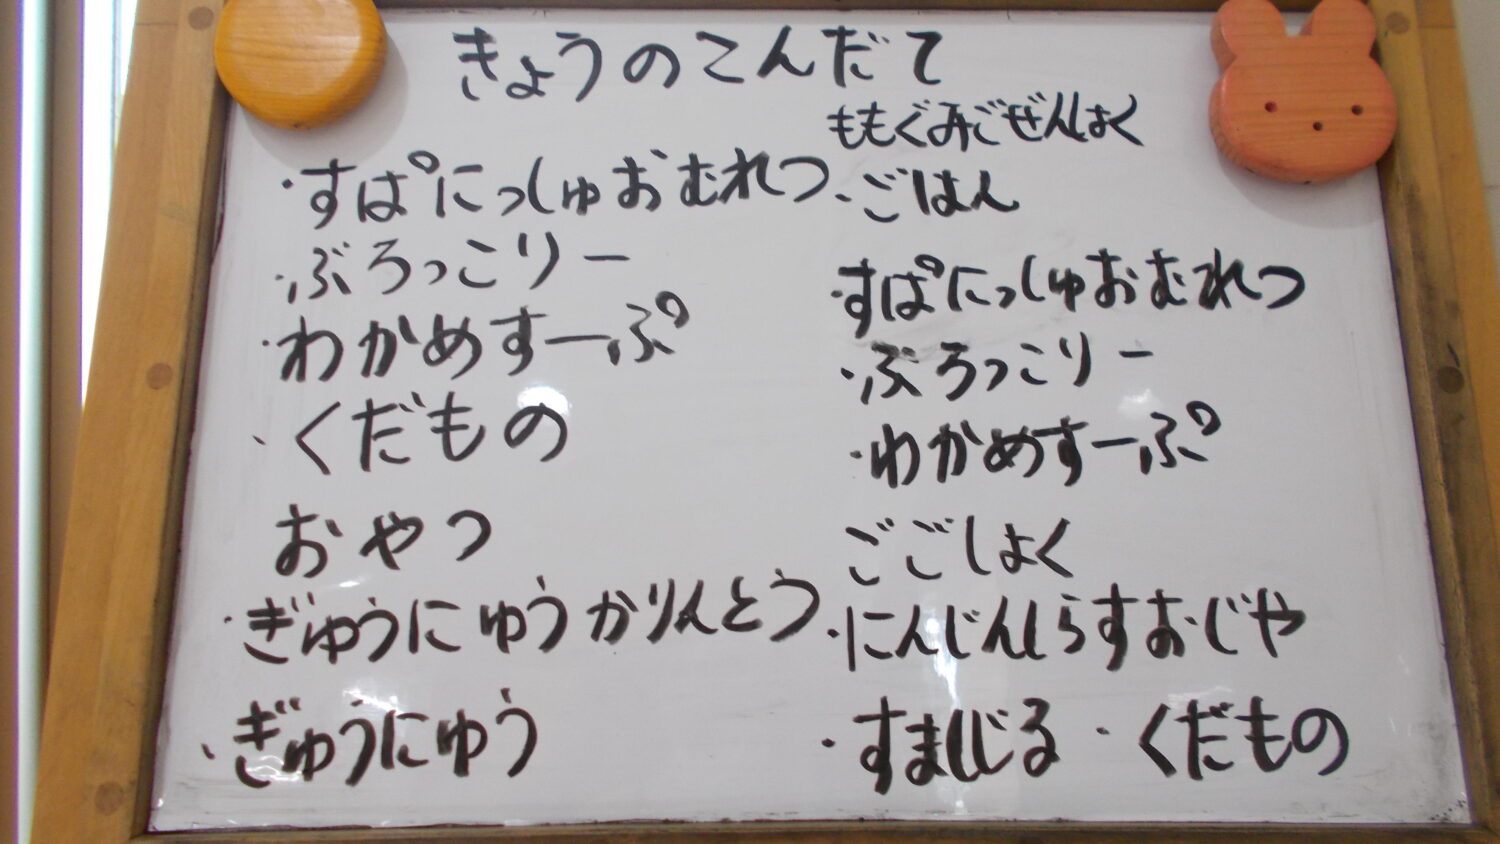 きょうのこんだて
・すぱにっしゅおむれつ
・ぶろっこりー
・わかめすーぷ
・くだもの
おやつ
・ぎゅうにゅうかりんとう
・ぎゅうにゅう
ももぐみごぜんしょく
・ごはん
・すぱにっしゅおむれつ
・ぶろっこりー
・わかめすーぷ
ごごしょく
・にんじんしらすおじや
・すましじる・くだもの